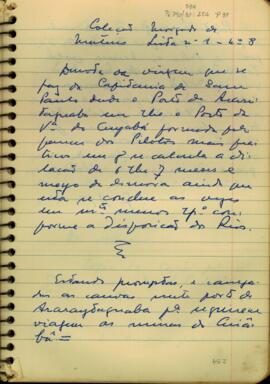 Coleção Morgado de
Mateus Lista nº 1 - nº 8
Derrota da viagem que se
faz da Capitania de Sam
Paulo desde o Porto de Arari
taguaba em the o Porto da
Vª do Cuyabá formada por
alguns dos Pilotos mais pra
ticos em qe se calcula a di
lação de 6 the 7 mezes e
meyo de demora ainda que
não se conclue as vezes
em mto menos tpo con
forme a disposição dos Rios.
Estando promptas, e carrega
das as canoas neste porto de
Araraytaguaba pª seguirem
viagem as minas do Cuia
bá =